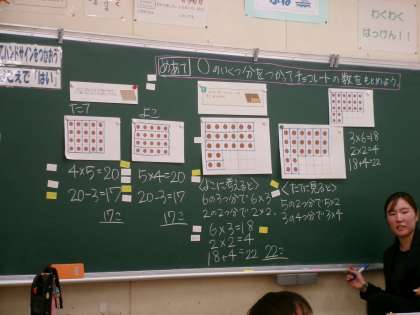 わくわく
はっけん!!
ハンドサインをつかおう
こえで「はい」
めあて ( )のいくつ分をつかってチョコレートの数をもとめよう。
たて
4×5=20
20-3=17
17こ
よこ
5×4=20
20-3=17
17こ
<よこに考えると>
6の3つ分で6×3
2の2つ分で2×2
6×3=18
2×2=4
18+4=22 22こ
<たてに見ると>
5の2つ分で5×2
3の4つ分で3×4
3×6=18
2×2=4
18+4=22